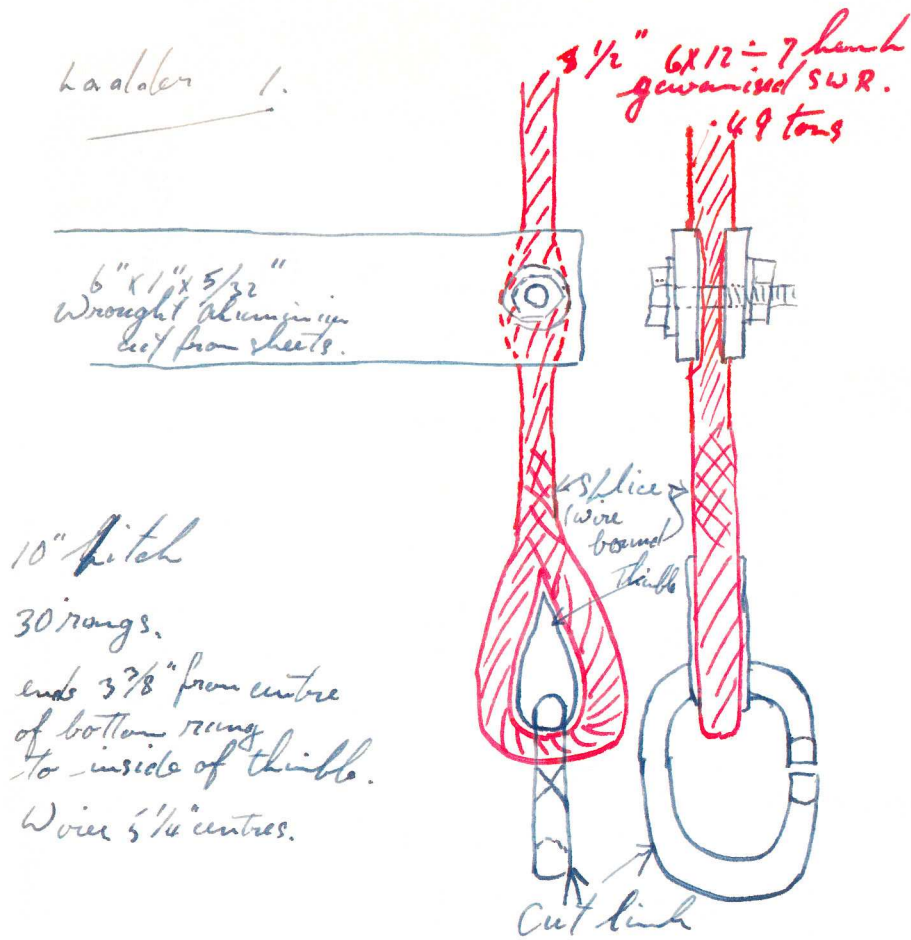 Ladder 1.
1/2" 6X12 ÷ 7 hemp
galvanised SWR.
.49 tons
6" X 1" X 5/32"
Wrought Aluminium
cut from sheets.
splice
wire
bound
Thimble
10" Pitch
30 rungs.
ends 3 3/8" from centre
of bottom rung
to inside of thimble.
Wires 5 1/4" centres.
Cut link